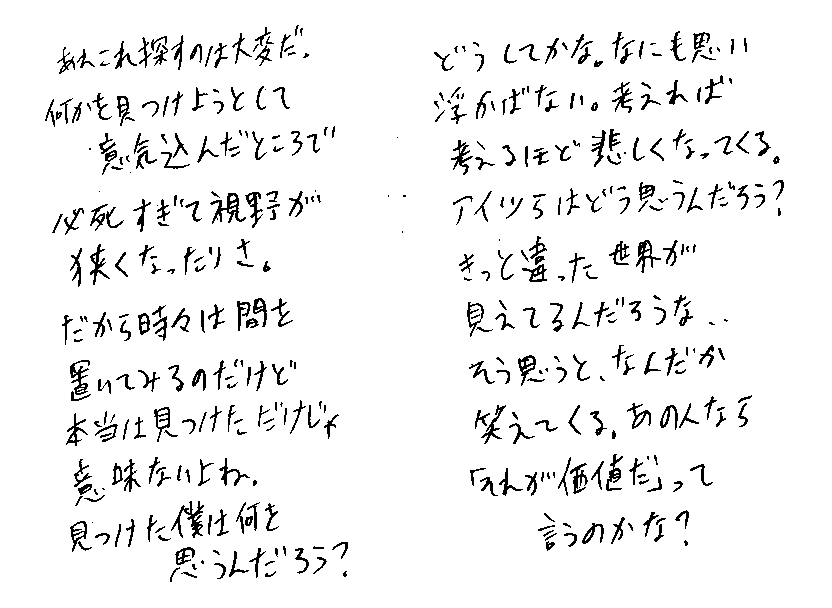 あれこれ探すのは大変だ。
何かを見つけようとして
意気込んだところで
必死すぎて視野が
狭くなったりさ。
だから時々は間を
置いてみるのだけど
本当は見つけただけじゃ
意味ないよね。
見つけた僕は何を
思うんだろう?
どうしてかな。なにも思い
浮かばない。考えれば
考えるほど悲しくなってくる。
アイツらはどう思うんだろう?
きっと違った世界が
見えてるんだろうな..
そう思うと、なんだか
笑えてくる。あの人なら
「それが価値だ」って
言うのかな?